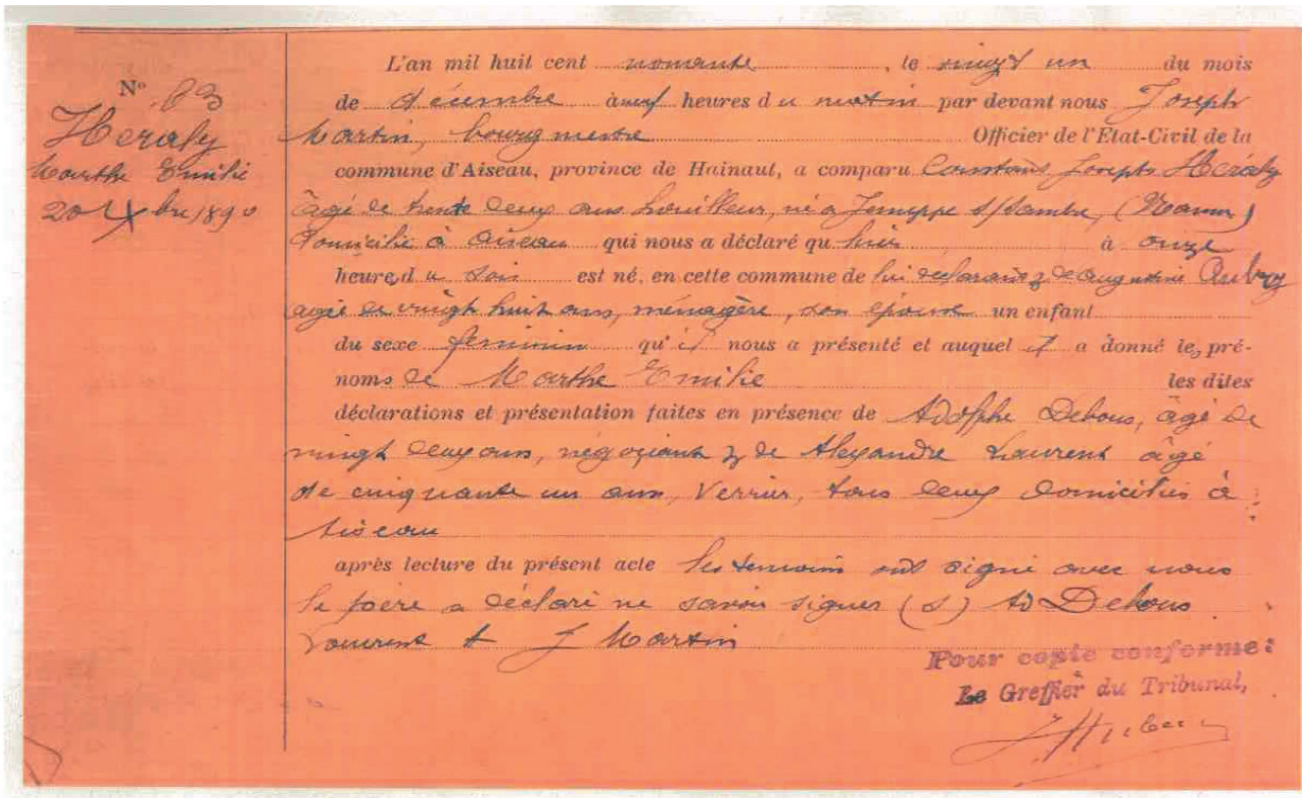 N° 83
Heraly
Marthe Emilie
20 Xbre 1890
L'an mil huit cent nonante, le vingt un du mois
de décembre à neuf heures du matin par devant nous Joseph
Martin, bourgmestre Officier de l'Etat-Civil de la
commune d'Aiseau, province de Hainaut, a comparu Constant Joseph Héraly
âgé de trente deux ans houilleur, né à Jemeppe s/Sambre, (Namur)
domicilié à Aiseau qui nous a déclaré qu'hier à onze
heures du soir est né, en cette commune de lui déclarant & de Augustine Aubry
agée de vingt huit ans, ménagère, son épouse un enfant
du sexe féminin qu'il nous a présenté et auquel il a donné les pré-
noms de Marthe Emilie les dites
déclarations et présentation faites en présence de Adolphe Debous, âgé de
vingt deux ans, négociant & de Alexandre Laurent âgé
de cinquante un ans, Verrier, tous deux domiciliés à
Aiseau
après lecture du présent acte les témoins ont signé avec nous
le père a déclaré ne savoir signer (s) Ad Debous
Laurent A J Martin
Pour copie conforme:
Le Greffier du Tribunal,